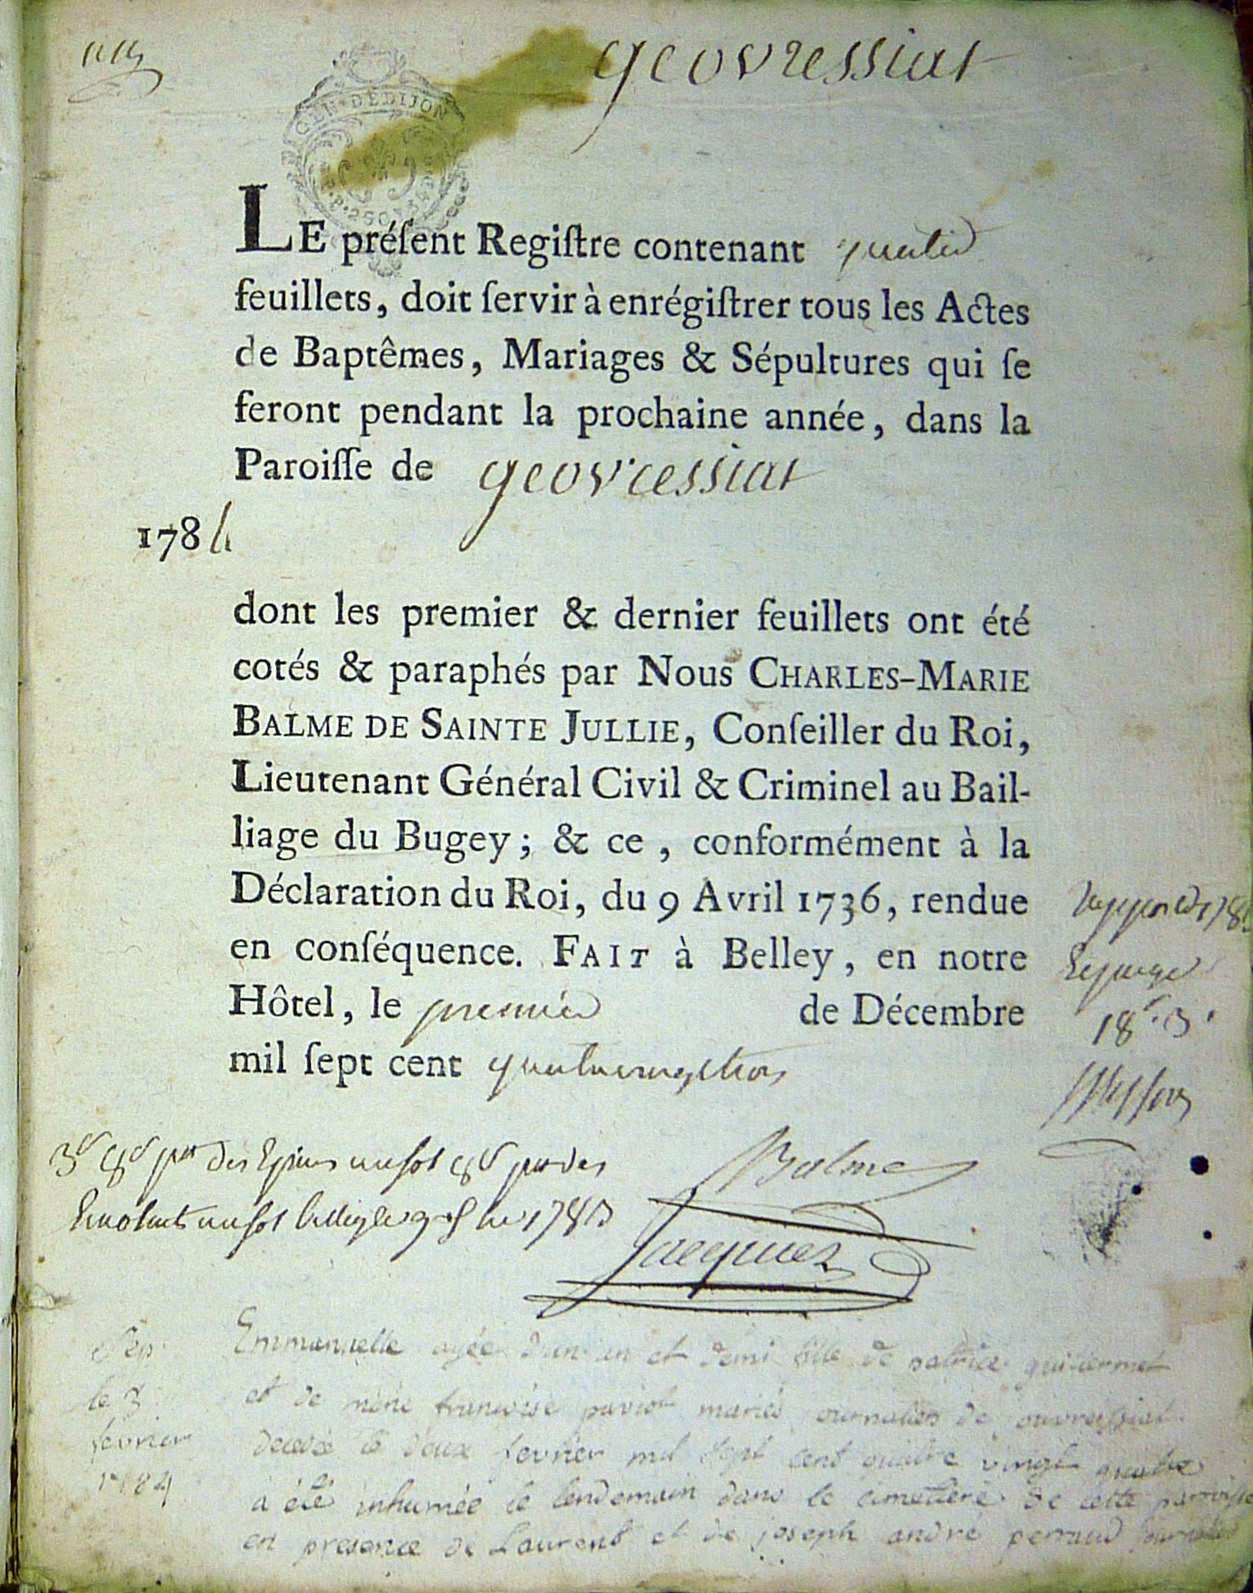 geovressiat
GEN. DE DIJON
LE préſent Regiſtre contenant quatre
feuillets, doit ſervir à enrégiſtrer tous les Actes
de Baptêmes, Mariages & Sépultures qui ſe
feront pendant la prochaine année, dans la
Paroiſſe de geovressiat
1784
dont les premier & dernier feuillets ont été
cotés & paraphés par Nous CHARLES-MARIE
BALME DE SAINTE JULLIE, Conſeiller du Roi,
Lieutenant Général Civil & Criminel au Bail-
liage du Bugey ; & ce, conformément à la
Déclaration du Roi, du 9 Avril 1736, rendue
en conſéquence. FAIT à Belley, en notre
Hôtel, le premier de Décembre
mil ſept cent quatrevingttrois
Balme
Jacquier
Emmanuelle agée d'un an et demi fille de patrice guillermet
et de françoise paviot mariés journalier de
decedée le deux fevrier mil sept cent quatre vingt quatre
le 3
fevrier
1784
a été inhumée le lendemain dans le cimetière de cette paroisse
en presence de Laurent et de joseph andré perraud